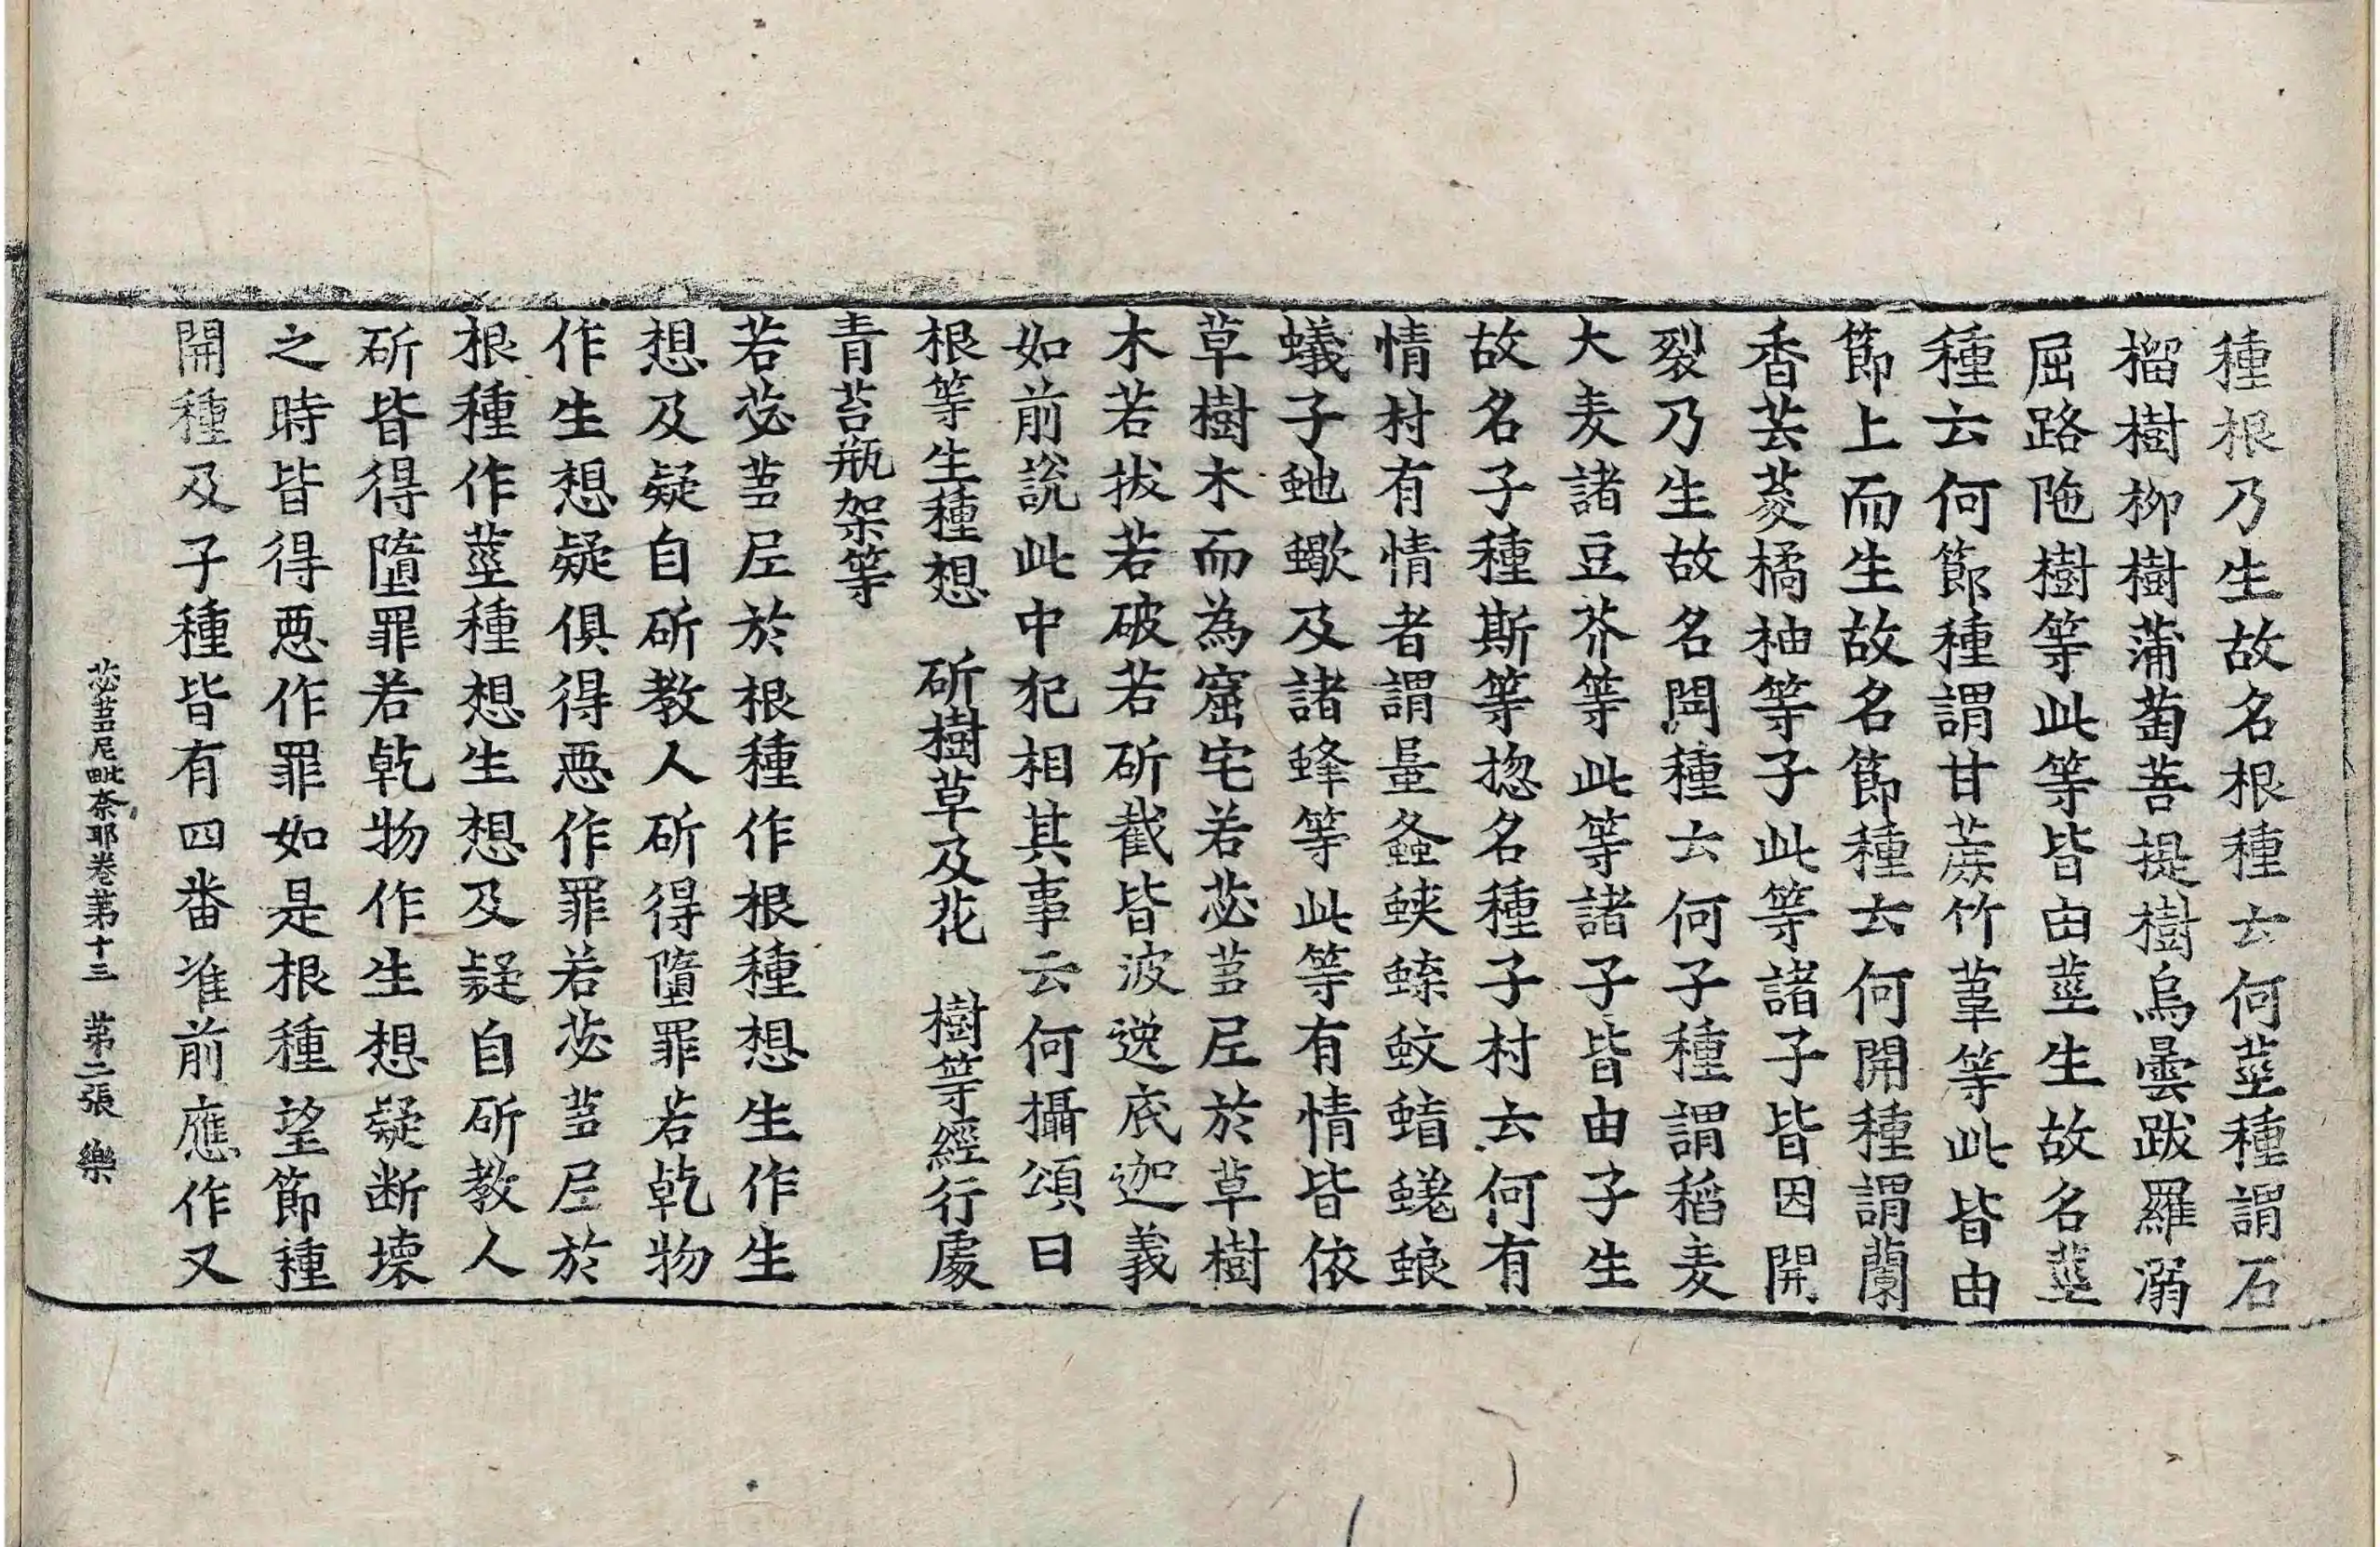 種根乃生故名根種云何莖種謂石
榴樹柳樹蒲萄菩提樹烏曇跋羅溺
屈路陁樹等此等皆由莖生故名莖
種云何節種謂甘蔗竹葦等此皆由
節上而生故名節種云何開種謂蘭
香芸荾橘柚等子此等諸子皆因開
裂乃生故名開種云何子種謂稻麦
大麦諸豆芥等此等諸子皆由子生
故名子種斯等揔名種子村云何有
情村有情者謂蛩螽蛺蝶蚊蜻蜣蜋
蟻子虵蠍及諸蜂等此等有情皆依
草樹木而為窟宅若苾芻尼於草樹
木若拔若破若斫截皆波逸底迦義
如前說此中犯相其事云何攝頌曰
根等生種想　斫樹草及花　樹等經行處
青苔瓶架等
若苾芻尼於根種作根種想生作生
想及疑自斫教人斫得墮罪若乾物
作生想疑俱得惡作罪若苾芻尼於
根種作莖種想生想及疑自斫教人
斫皆得墮罪若乾物作生想疑断壞
之時皆得惡作罪如是根種望節種
開種及子種皆有四番准前應作又
苾芻尼毗奈耶卷第十三　第二張　樂